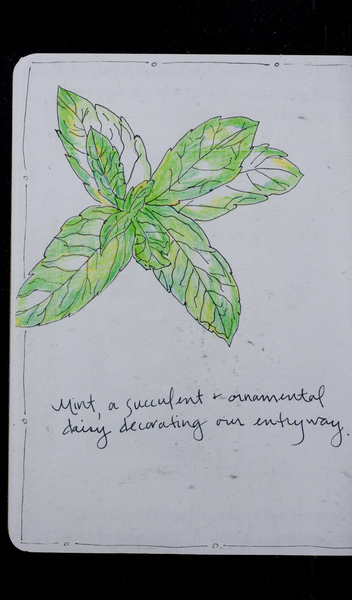 Mint, a succulent & ornamental
daisy decorating our entryway.